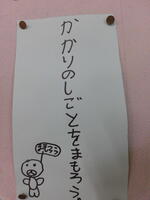 かかりのしごとをまもろう。
まもろう